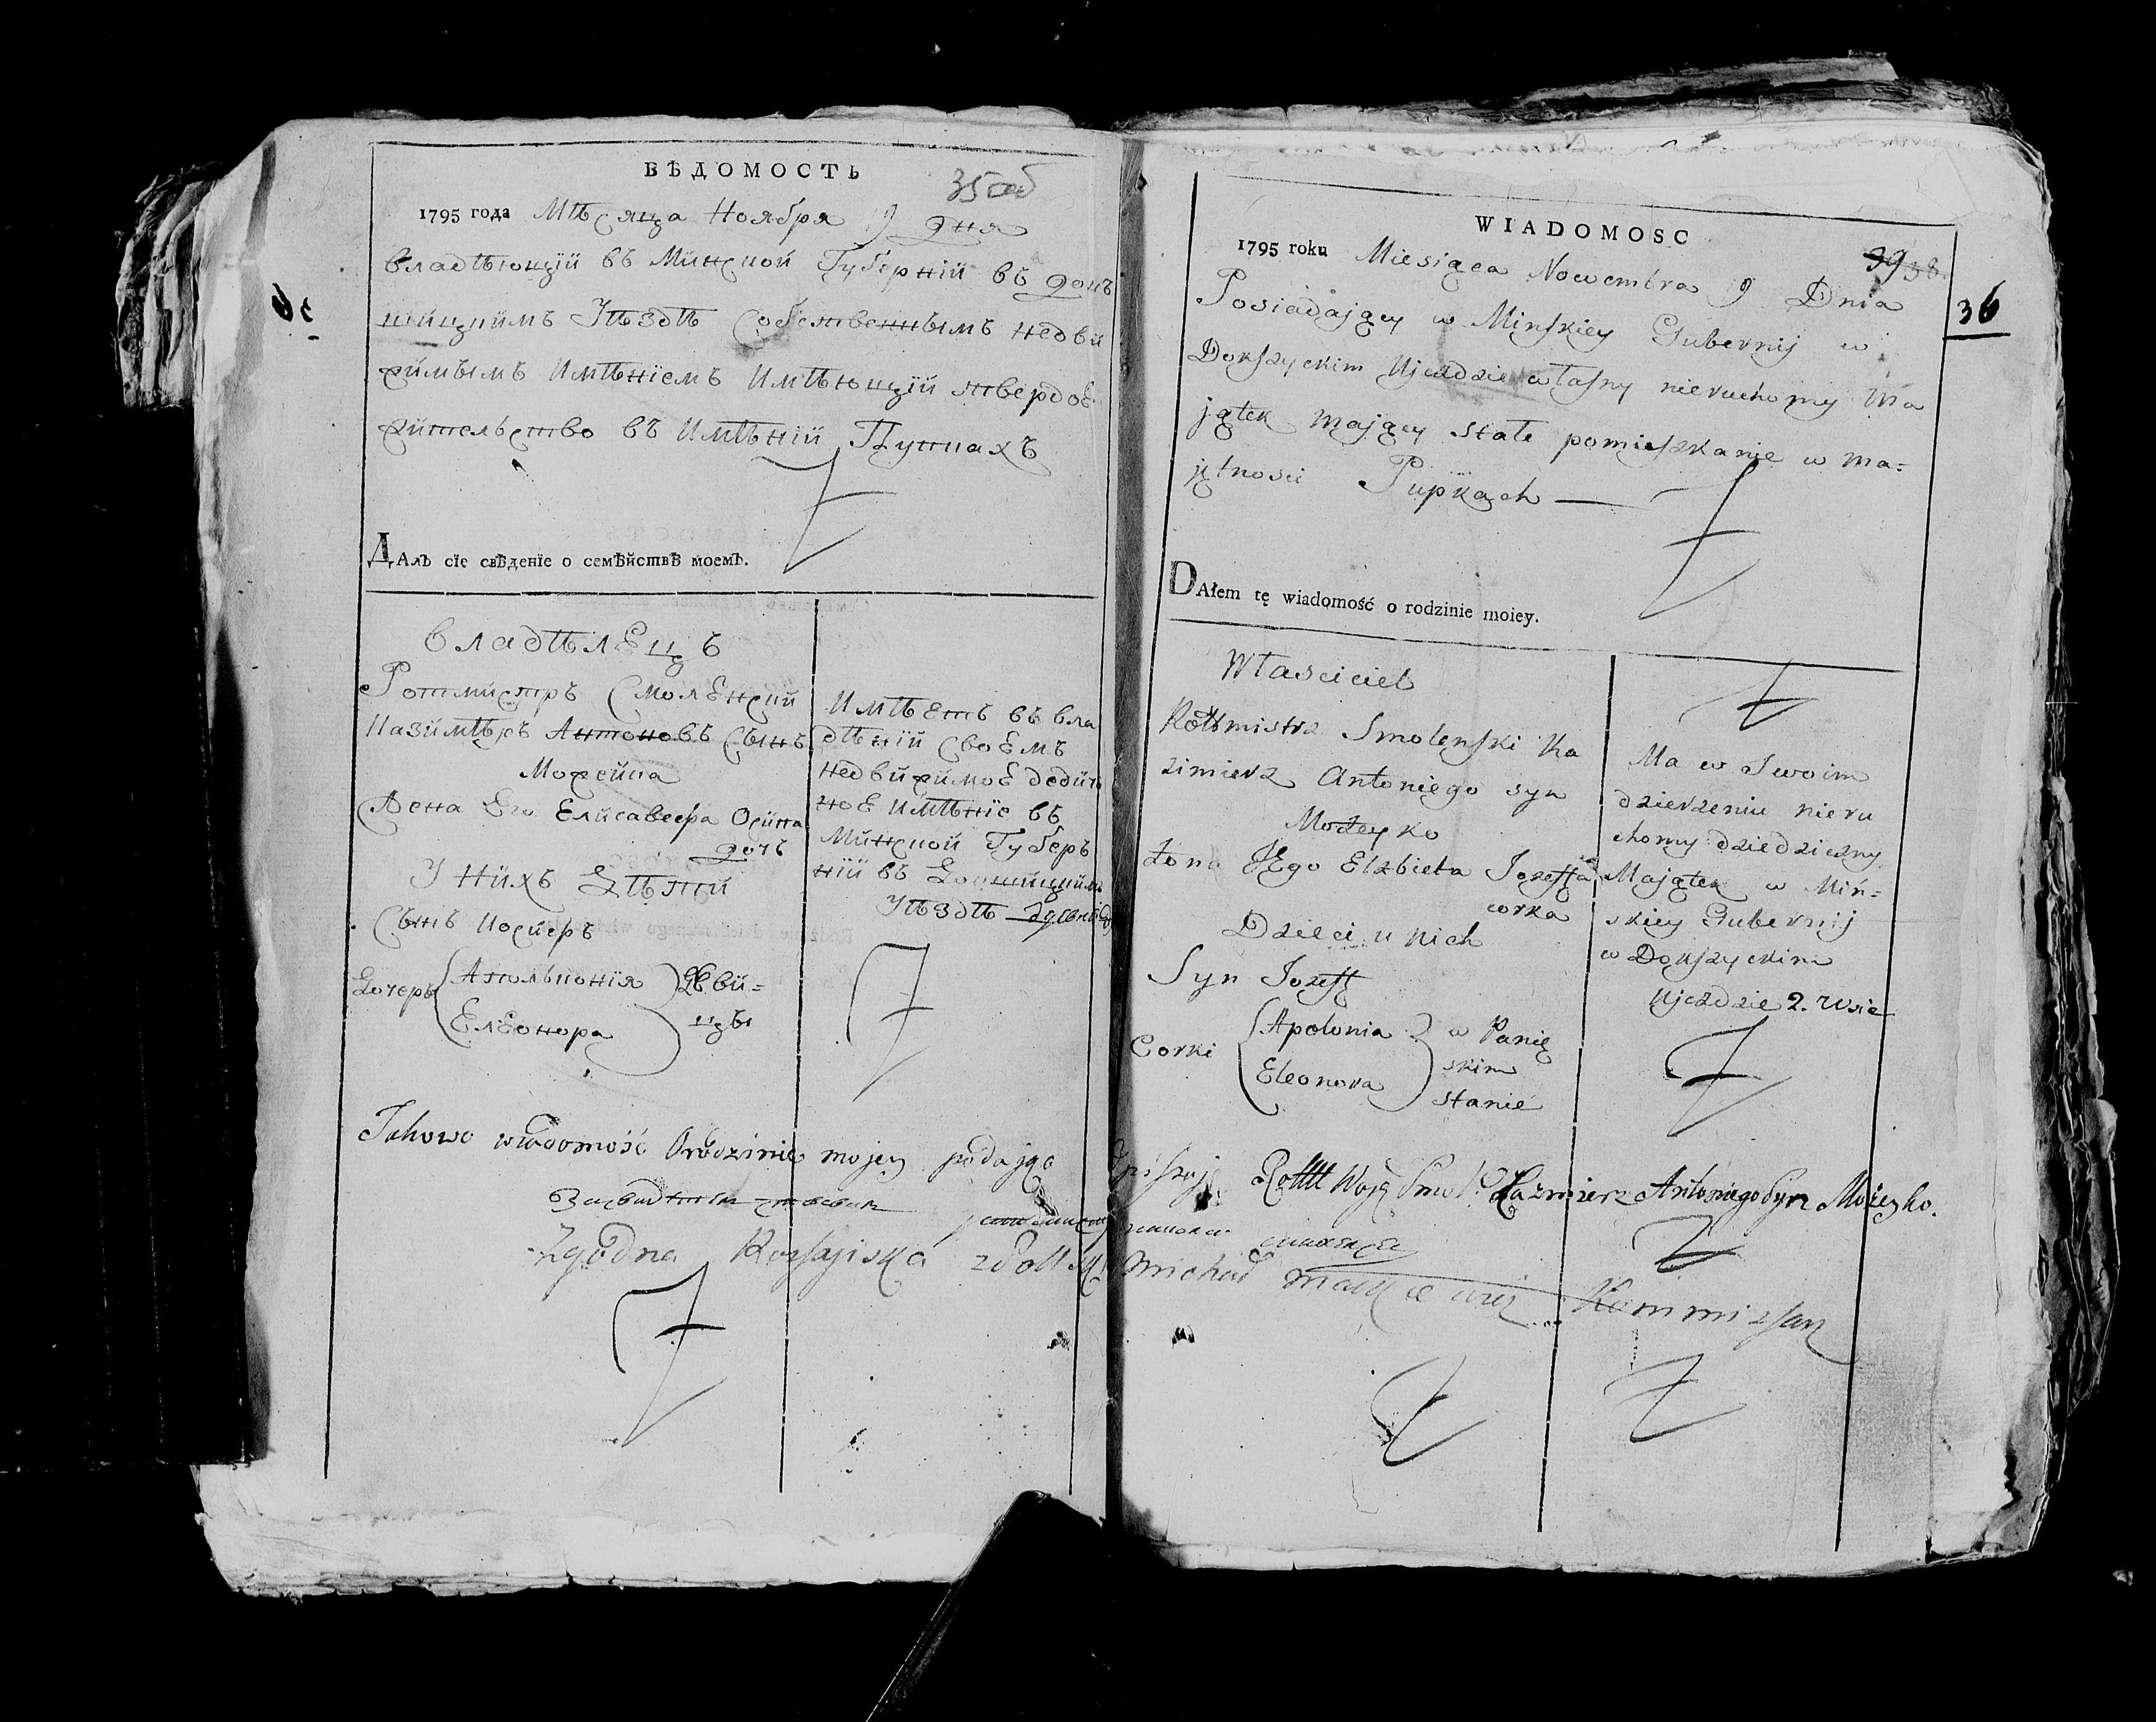 ВѢДОМОСТЬ
35 об
1795 года Мѣсяца Ноября 9 дня
владѣющїй въ Минской Губернїй въ Док
шицкимъ Уѣздѣ собственнымъ недви
жимымъ имѣнїемъ имѣющїй твердое
жительство въ имѣнїй Пупкахъ
ДАлъ сїе свѣденїе о семѣйствѣ моемъ.
владѣлецъ
Ротмистръ Смоленский
Казимѣръ Антоновъ сынъ
Можейка
Жена Его Елисавефа Осипа
дочь
У нихъ Дѣти
сынъ Иосиеръ
Дочеръ Апольлонїя Дѣви=
Елеонора цы
Имѣетъ въ вла
дѣнїй своемъ
недвижимое дедич
ное имѣнїе въ
Минской Губер
нїй въ Докшицкимъ
Уѣздѣ
WIADOMOSC
39 38
36
1795 roku Miesiąca Nowembra 9 Dnia
Posiadaiący w Minskiey Gubernij w
Dokszyckim Ujezdzie własny nieruchomy Ma
jątek mający stałe pomieszkanie w ma=
jętnosci Pupkach
DAłem tę wiadomość o rodzinie moiey.
Własciciel
Rottmistrz Smolenski Ka
zimierz Antoniego syn
Możeyko
Żona Jego Elzbieta Jozeffa
corka
Dzieci u nich
Syn Jozeff
Corki Apolonia w Panię
Eleonora skim
stanie
Ma w swoim
dzierzeniu nieru
chomy dziedziczny
Majątek w Miń=
skiey Gubernij
w Dokszyckim
Ujezdzie 2. Wsie
Takowo wiadomość O rodzinie mojey podając podpisuję Rottt Wojs Smol: Kazimierz Antoniego Syn Możeyko.
Zgodna Michał Mackiewicz Kommissarz